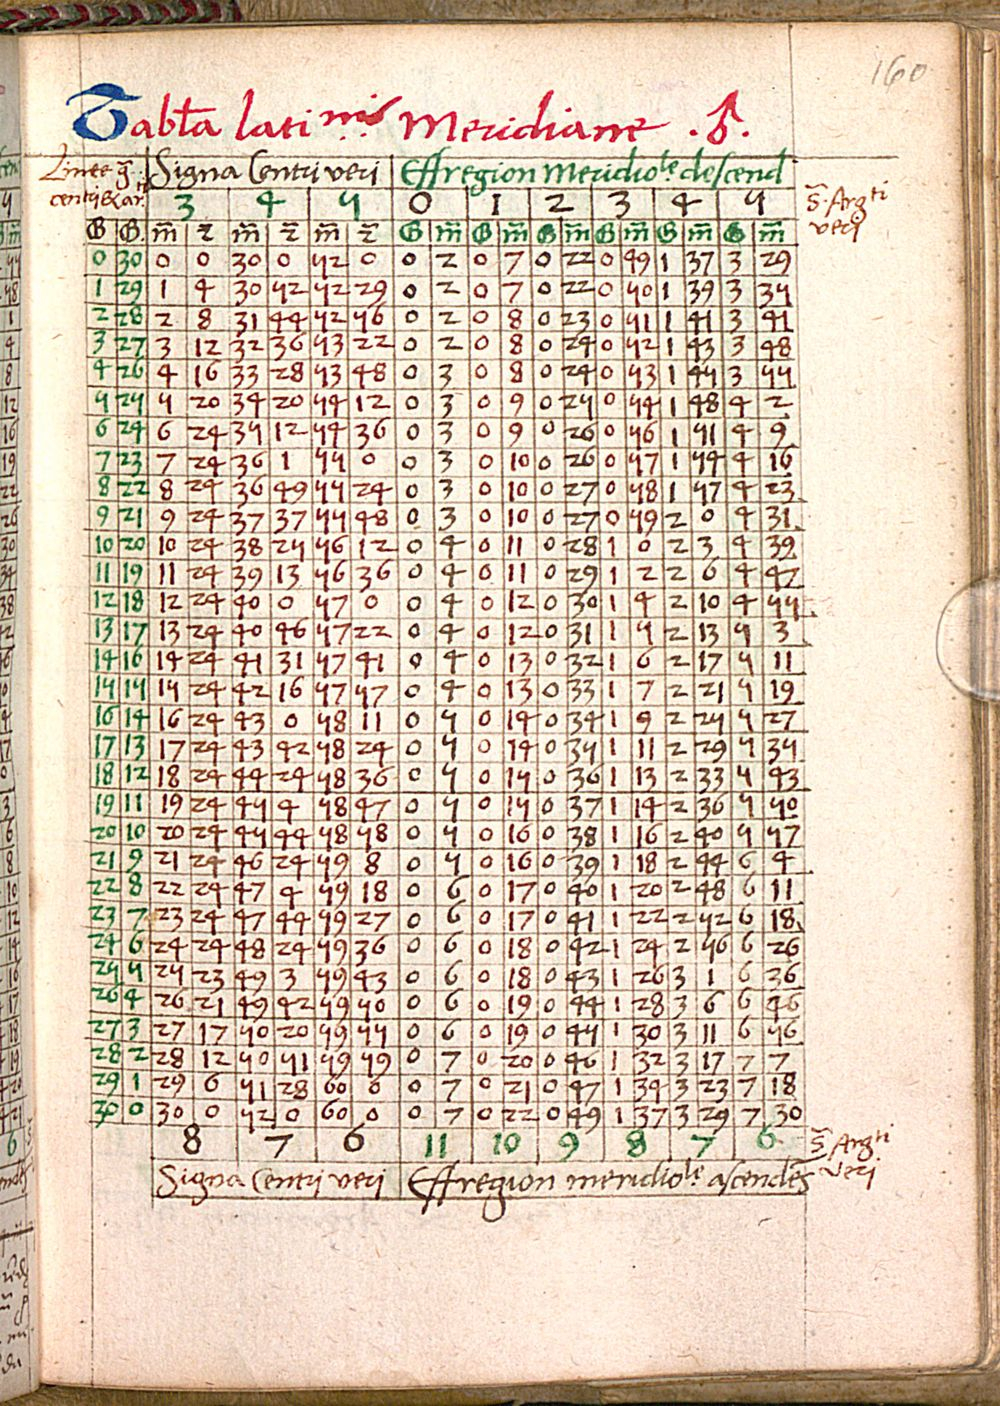 160
Tabła latinis Meridiane .♄.
Linee q̃ centri & ar.ti
Signa Centri veri Effregion meridiole descend
3 4 5 0 1 2 3 4 5
S̃. Argti veri
G G. m̃ z̃ m̃ z̃ m̃ z̃ G m̃ G m̃ G m̃ G m̃ G m̃ G m̃
0 30 0 0 30 0 52 0 0 2 0 7 0 22 0 49 1 37 3 29
1 29 1 4 30 52 52 29 0 2 0 7 0 22 0 50 1 39 3 35
2 28 2 8 31 44 52 56 0 2 0 8 0 23 0 51 1 41 3 41
3 27 3 12 32 36 53 22 0 2 0 8 0 24 0 52 1 43 3 48
4 26 4 16 33 28 53 48 0 3 0 8 0 24 0 53 1 45 3 55
5 25 5 20 34 20 54 12 0 3 0 9 0 25 0 54 1 48 4 2
6 24 6 24 35 12 54 36 0 3 0 9 0 26 0 56 1 51 4 9
7 23 7 24 36 1 55 0 0 3 0 10 0 26 0 57 1 54 4 16
8 22 8 24 36 49 55 24 0 3 0 10 0 27 0 58 1 57 4 23
9 21 9 24 37 37 55 48 0 3 0 10 0 27 0 59 2 0 4 31
10 20 10 24 38 25 56 12 0 4 0 11 0 28 1 0 2 3 4 39
11 19 11 24 39 13 56 36 0 4 0 11 0 29 1 2 2 6 4 47
12 18 12 24 40 0 57 0 0 4 0 12 0 30 1 4 2 10 4 55
13 17 13 24 40 46 57 22 0 4 0 12 0 31 1 5 2 13 5 3
14 16 14 24 41 31 57 41 0 4 0 13 0 32 1 6 2 17 5 11
15 15 15 24 42 16 57 57 0 4 0 13 0 33 1 7 2 21 5 19
16 14 16 24 43 0 58 11 0 5 0 14 0 34 1 9 2 25 5 27
17 13 17 24 43 42 58 24 0 5 0 14 0 35 1 11 2 29 5 35
18 12 18 24 44 24 58 36 0 5 0 15 0 36 1 13 2 33 5 43
19 11 19 24 45 4 58 47 0 5 0 15 0 37 1 14 2 36 5 50
20 10 20 24 45 44 58 58 0 5 0 16 0 38 1 16 2 40 5 57
21 9 21 24 46 24 59 8 0 5 0 16 0 39 1 18 2 44 6 4
22 8 22 24 47 4 59 18 0 6 0 17 0 40 1 20 2 48 6 11
23 7 23 24 47 44 59 27 0 6 0 17 0 41 1 22 2 52 6 18
24 6 24 24 48 24 59 36 0 6 0 18 0 42 1 24 2 56 6 26
25 5 25 23 49 3 59 43 0 6 0 18 0 43 1 26 3 1 6 36
26 4 26 21 49 42 59 50 0 6 0 19 0 44 1 28 3 6 6 46
27 3 27 17 50 20 59 55 0 6 0 19 0 45 1 30 3 11 6 56
28 2 28 12 50 51 59 59 0 7 0 20 0 46 1 32 3 17 7 7
29 1 29 6 51 28 60 0 0 7 0 21 0 47 1 34 3 23 7 18
30 0 30 0 52 0 60 0 0 7 0 22 0 49 1 37 3 29 7 30
8 7 6 11 10 9 8 7 6
S̃ Argti veri
Signa Centri veri Effregion meridiole ascendēs